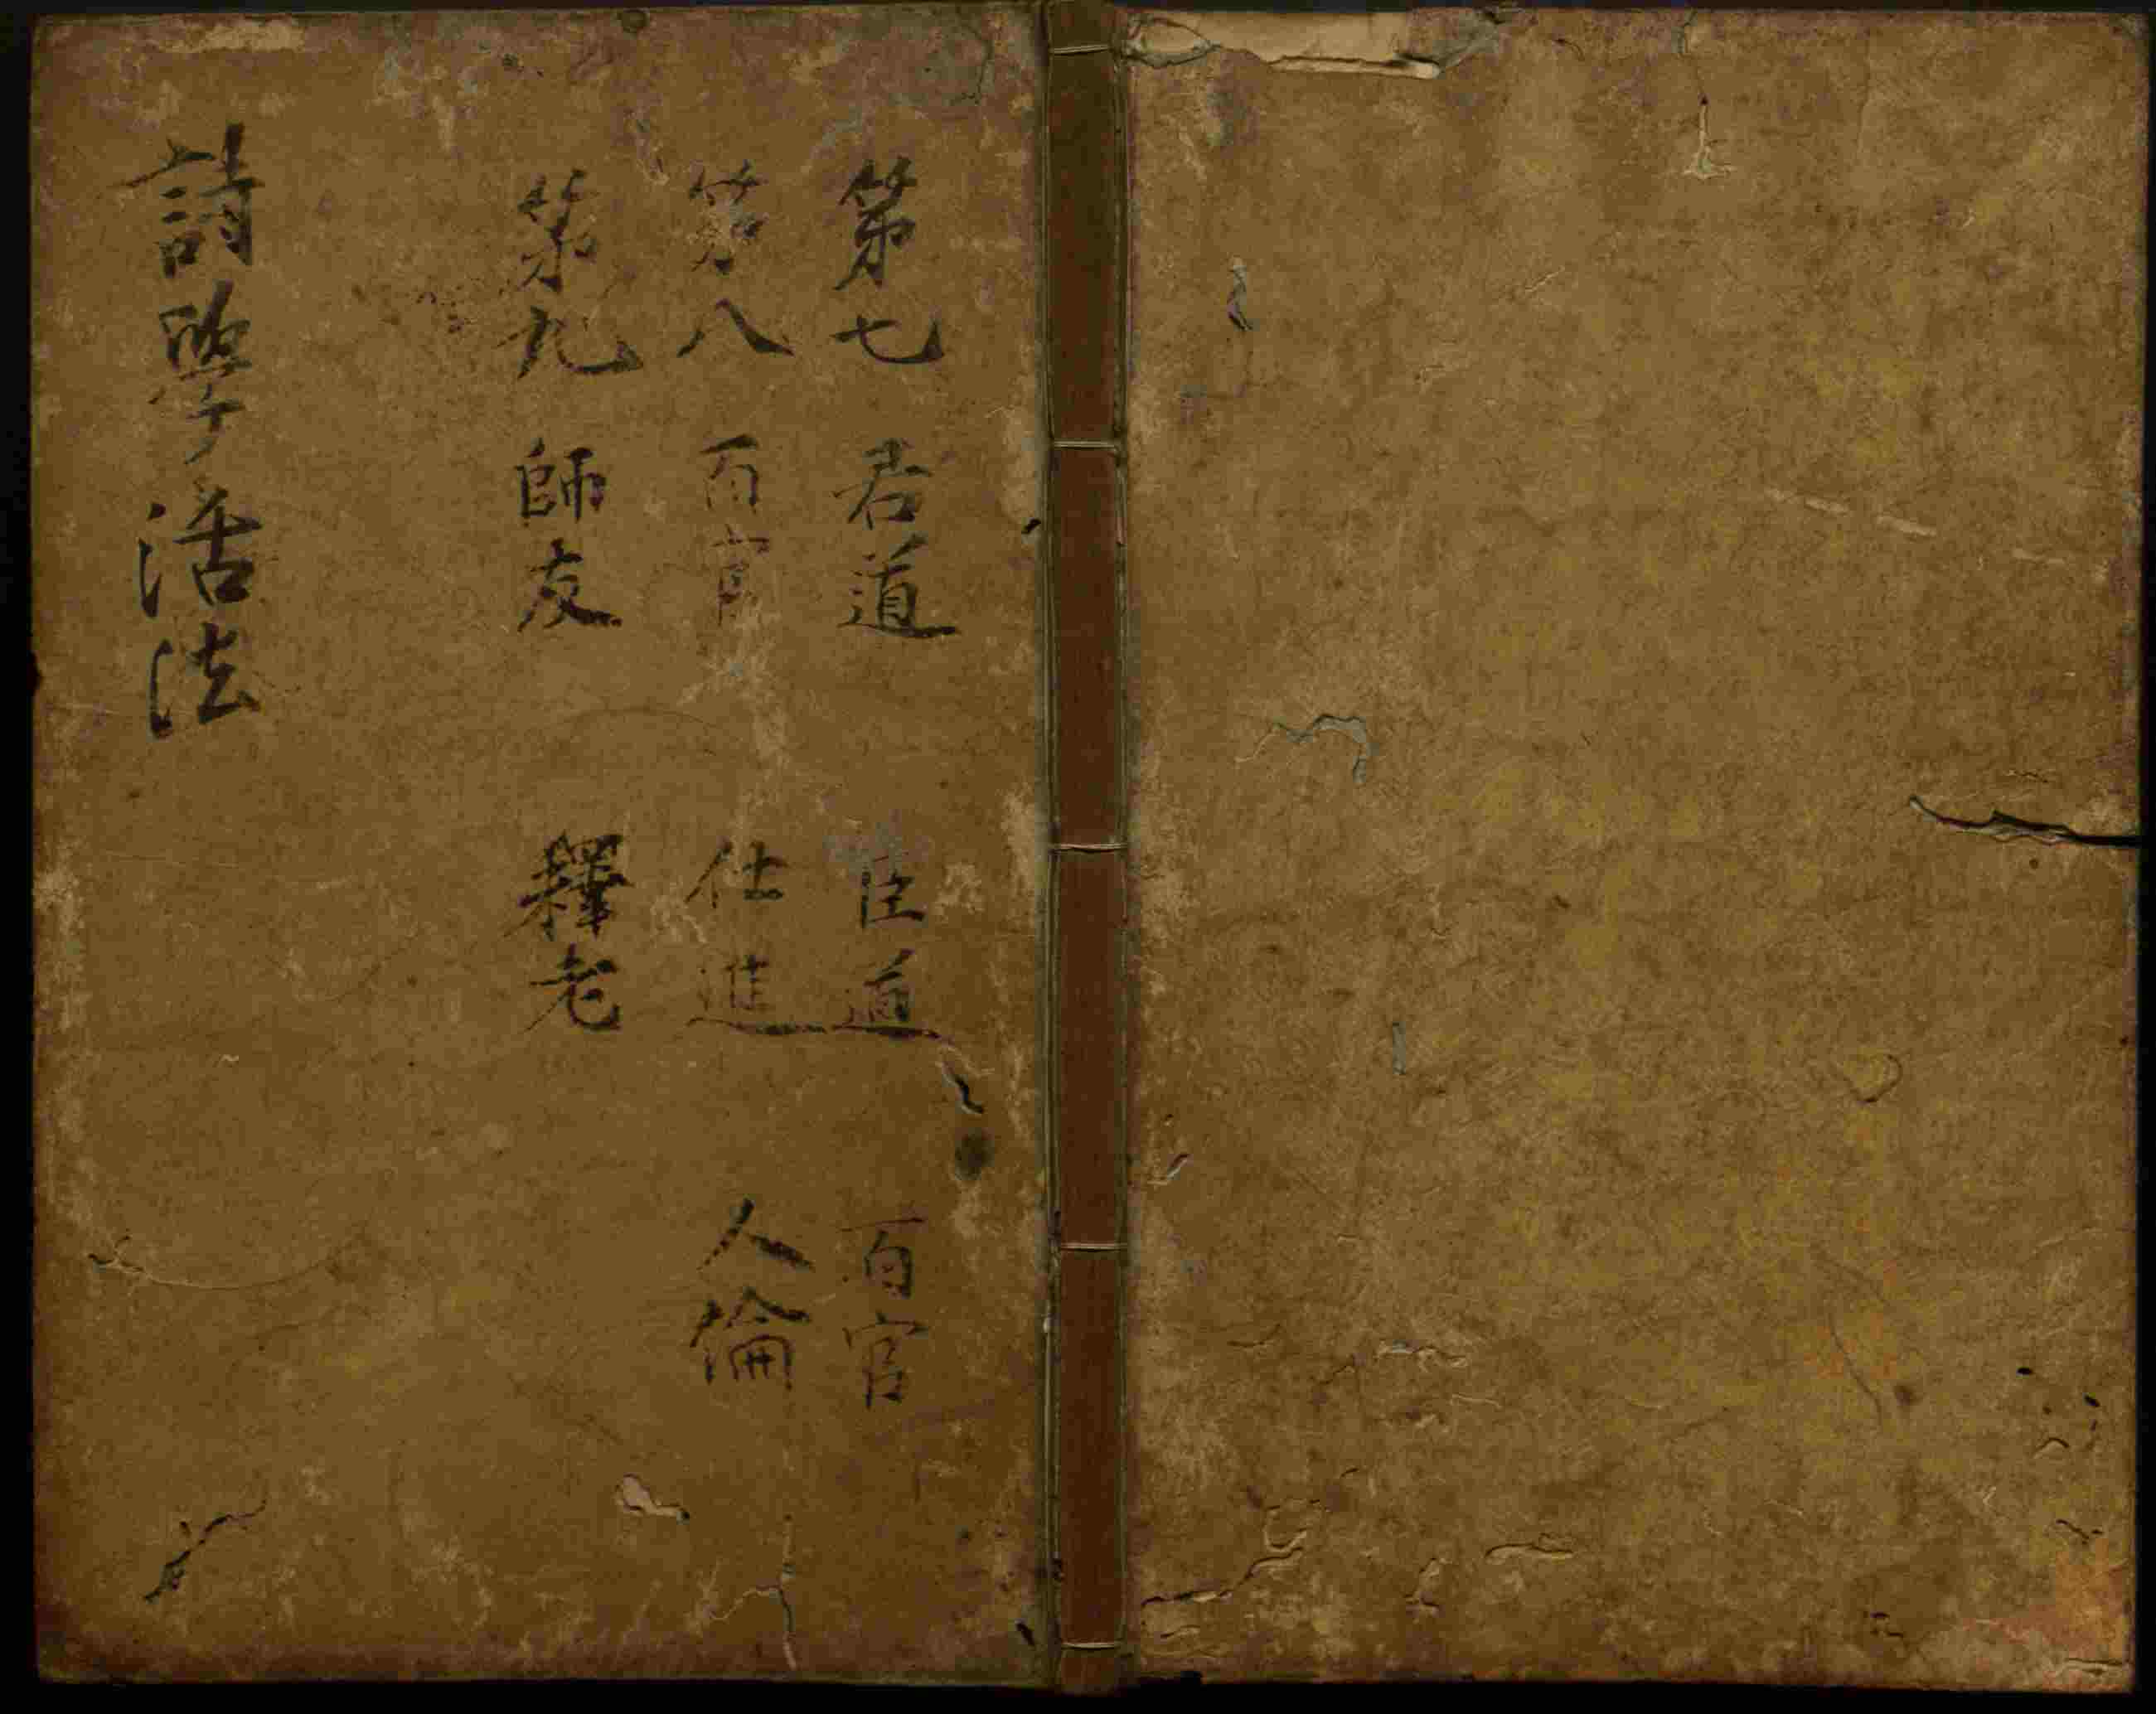 第七 君道 臣道 百官
第八 百官 仕進 人倫
第九 師友 釋老
詩學活法